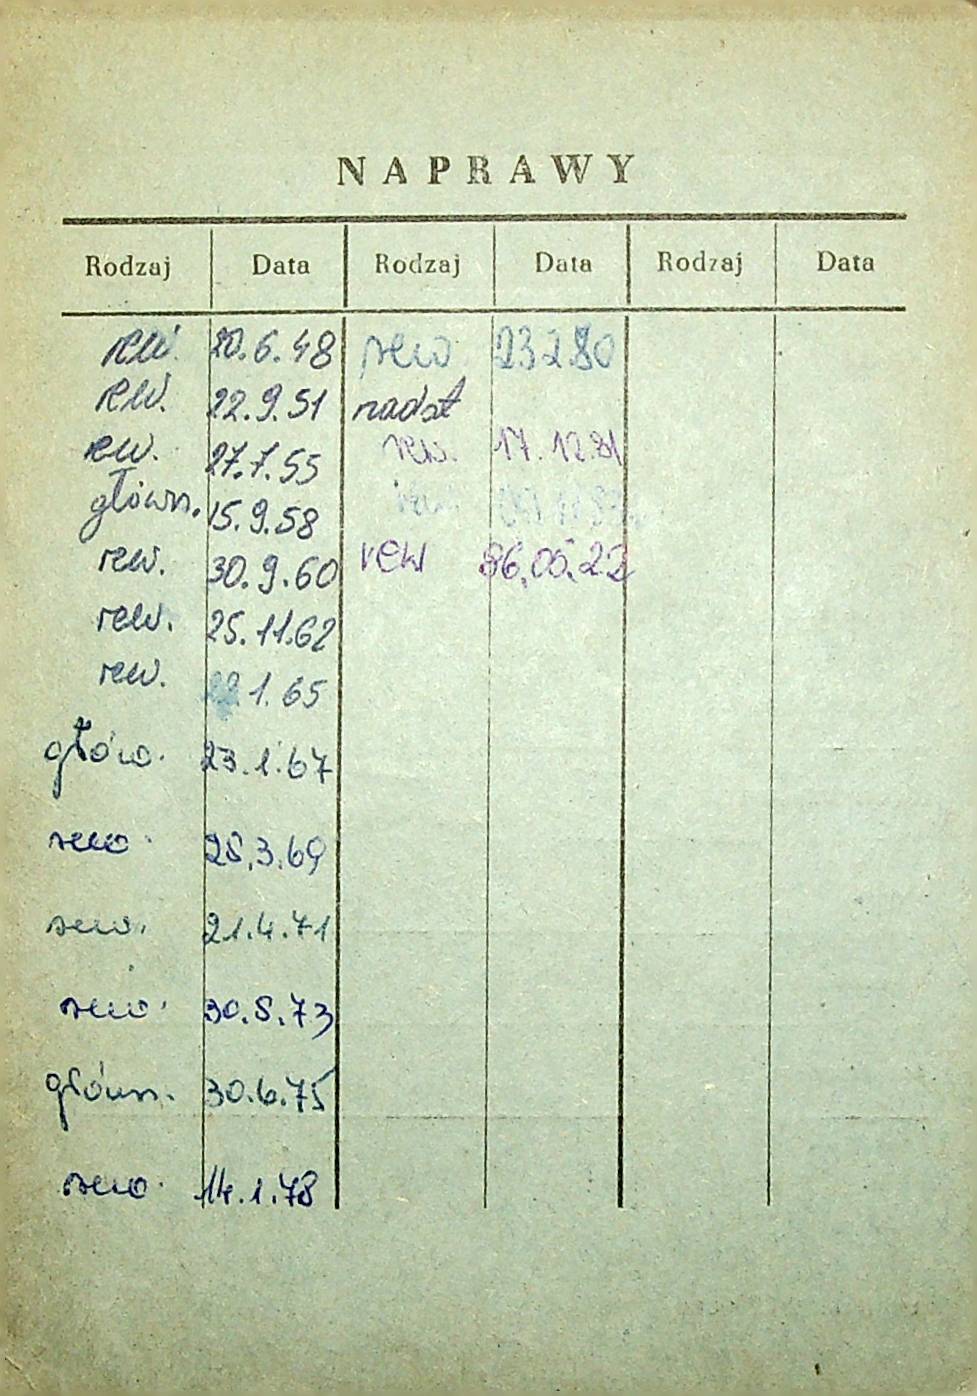 NAPRAWY
Rodzaj Data Rodzaj Data Rodzaj Data
rew. 20.6.48 rew 23 2 80
rew. 22.9.51 nadst
rew. 27.7.55 rew. 17.12.81
główn. 15.9.58
rew. 30.9.60 rew 86,05.22
rew. 25.11.62
rew. 1.65
główn. 23.1.67
rew. 28.3.69
rew. 21.4.71
rew. 30.8.73
główn. 30.6.75
rew. 14.1.78